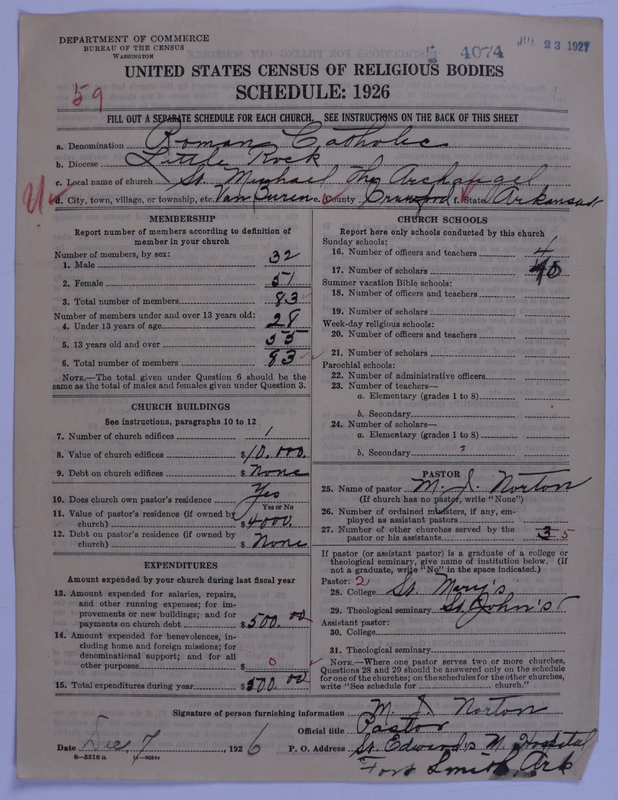 DEPARTMENT OF COMMERCE
BUREAU OF THE CENSUS
WASHINGTON
4074
JUL 23 1927
59
UNITED STATES CENSUS OF RELIGIOUS BODIES
SCHEDULE: 1926
FILL OUT A SEPARATE SCHEDULE FOR EACH CHURCH. SEE INSTRUCTIONS ON THE BACK OF THIS SHEET
a. Denomination Roman Catholic
b. Diocese Little Rock
c. Local name of church St. Michael The Archangel
d. City, town, village, or township, etc. Van Buren e. County Crawford f. State Arkansas
MEMBERSHIP
Report number of members according to definition of
member in your church
Number of members, by sex:
1. Male 32
2. Female 51
3. Total number of members 83
Number of members under and over 13 years old:
4. Under 13 years of age 28
5. 13 years old and over 55
6. Total number of members 83
NOTE.—The total given under Question 6 should be the
same as the total of males and females given under Question 3.
CHURCH BUILDINGS
See instructions, paragraphs 10 to 12
7. Number of church edifices 1
8. Value of church edifices $10.000
9. Debt on church edifices $None
10. Does church own pastor's residence Yes
Yes or No
11. Value of pastor's residence (if owned by
church) $4000.
12. Debt on pastor's residence (if owned by
church) $None
EXPENDITURES
Amount expended by your church during last fiscal year
13. Amount expended for salaries, repairs,
and other running expenses; for im-
provements or new buildings; and for
payments on church debt $500.00
14. Amount expended for benevolences, in-
cluding home and foreign missions; for
denominational support; and for all
other purposes $ 0
15. Total expenditures during year $500.00
CHURCH SCHOOLS
Report here only schools conducted by this church
Sunday schools:
16. Number of officers and teachers 4
17. Number of scholars
Summer vacation Bible schools:
18. Number of officers and teachers
19. Number of scholars
Week-day religious schools:
20. Number of officers and teachers
21. Number of scholars
Parochial schools:
22. Number of administrative officers
23. Number of teachers—
a. Elementary (grades 1 to 8)
b. Secondary
24. Number of scholars—
a. Elementary (grades 1 to 8)
b. Secondary
PASTOR
25. Name of pastor M. J. Norton
(If church has no pastor, write "None")
26. Number of ordained ministers, if any, em-
ployed as assistant pastors
27. Number of other churches served by the
pastor or his assistants 3 5
If pastor (or assistant pastor) is a graduate of a college or
theological seminary, give name of institution below. (If
not a graduate, write "No" in the space indicated.)
Pastor: 2
28. College St. Mary's
29. Theological seminary St. John's
Assistant pastor:
30. College
31. Theological seminary
NOTE.—Where one pastor serves two or more churches,
Questions 28 and 29 should be answered only on the schedule
for one of the churches; on the schedules for the other churches,
write "See schedule for church."
Signature of person furnishing information M. J. Norton
Official title Pastor
Date Dec. 7, 1926 P. O. Address St. Edward's M. Hospital
8—5518a 11—9056a Fort Smith, Ark